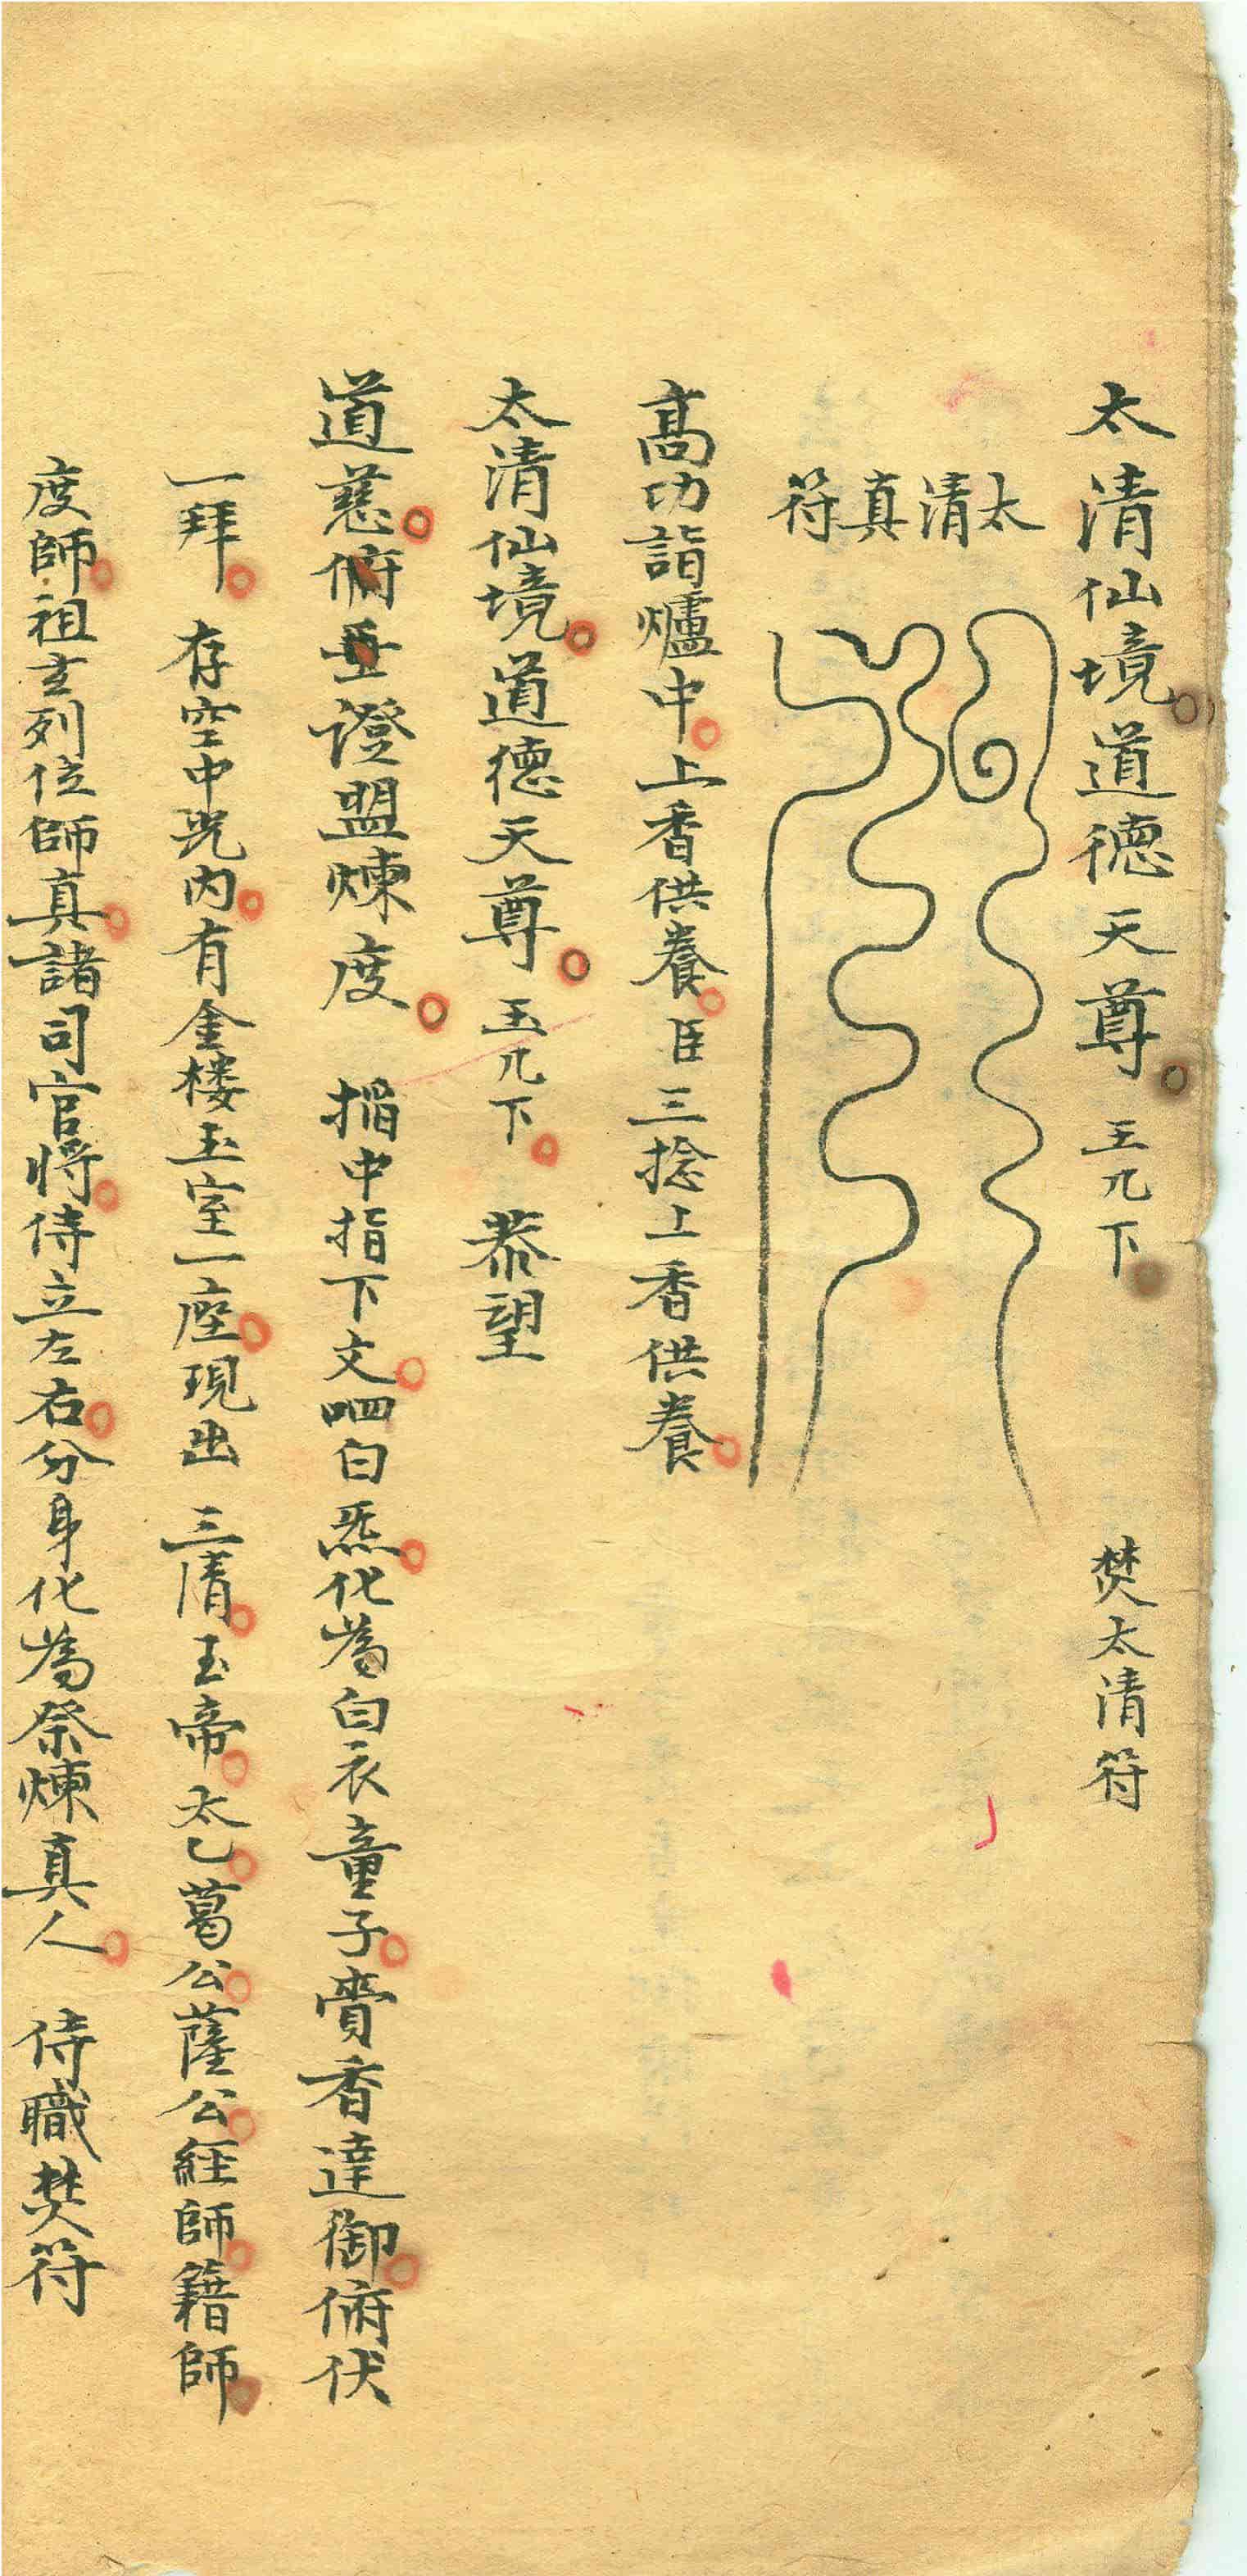 太清仙境道德天尊 玉几下 焚太清符
太清真符
髙功詣爐中上香供養臣三捻上香供養
太清仙境道德天尊 玉几下 恭望
道慈俯垂證盟煉度 搯中指下文呬白炁化為白衣童子賫香達御俯伏
一拜 存空中炁内有金楼玉室一座現出 三清玉帝太乙葛公薩公經師籍師
度師祖玄列位師真諸司官将侍立左右分身化為祭煉真人 侍職焚符